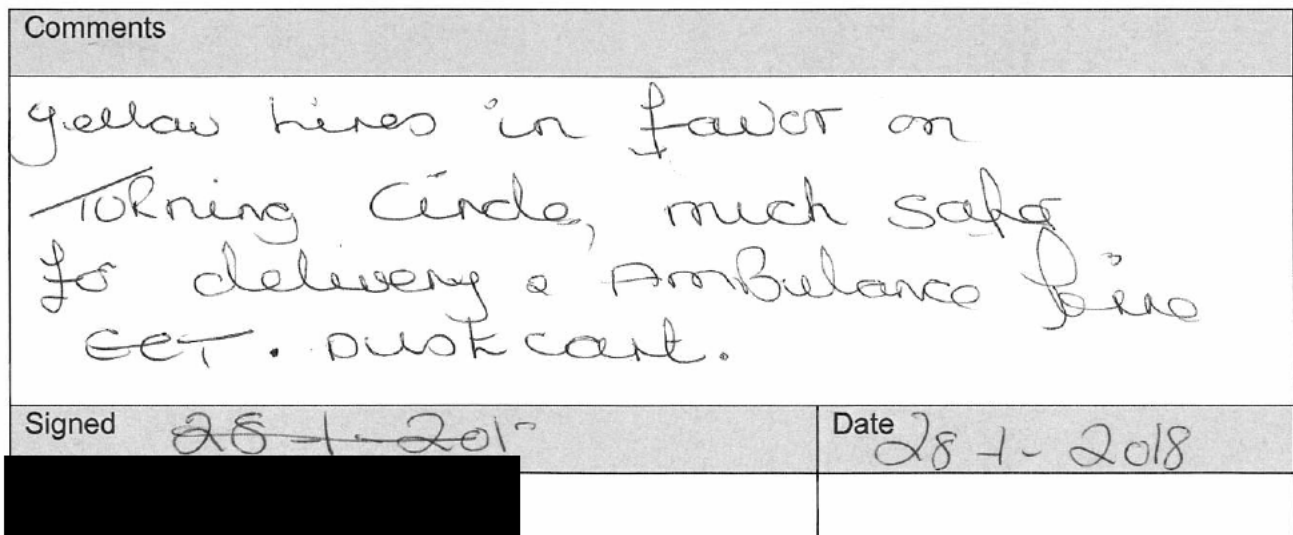 Comments
yellow lines in favor on
Torning Circle, much safer
for delivery & AmBulance fire
ECT. DUSTcart.
Signed 28-1-201
Date 28-1-2018